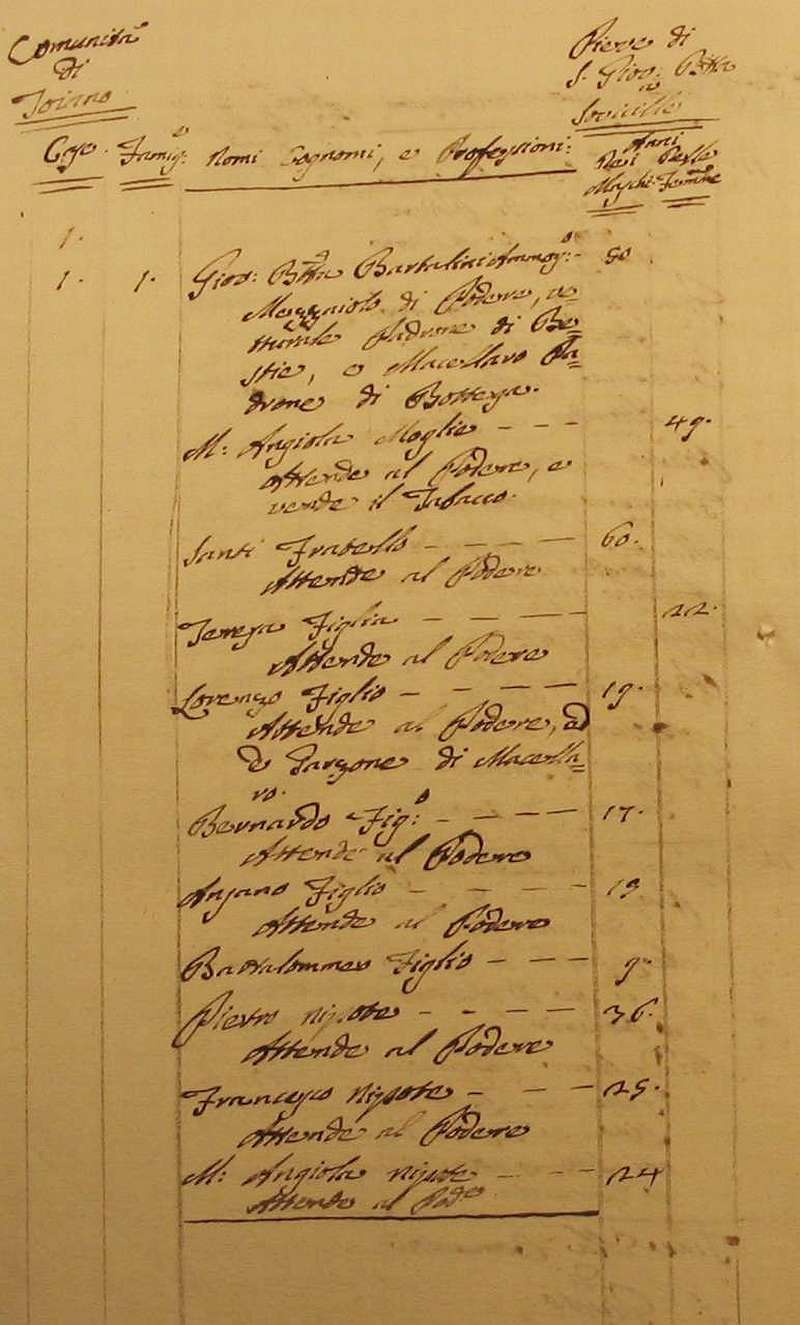 Comunità
di
Toiano
Pieve di
S. Giov: Btta
a
Sovicille
Case. Famig:e Nomi Cognomi, e Professioni:
Anni
Dei Delle
Maschi. Femine
1.
1. 1. Giov: Btta Bartalini Ammog:o - 50
Mezzaiolo di Podere, ve=
tturale Padrone di Be=
stie, e Macellaro Pa=
drone di Bottega.
M: Angiola Moglie - - - 49.
Attende al Podere, e
vende il Tabacco.
Santi Fratello - - - - 60.
Attende al Podere
Teresa Figlia - - - - 22.
Attende al Podere
Lorenzo Figlio - - - - 19.
Attende al Podere, ed
è Garzone di Macella=
ro.
Bernardo Fig:o - - - - 17.
Attende al Podere
Ansano Figlio - - - - 13
Attende al Podere
Bartalommeo Figlio - - - 9.
Pietro Nipote - - - - 36.
Attende al Podere
Francesco Nipote - - - 25.
Attende al Podere
M: Angiola Nipote - - - 24
Attende al Pod:e